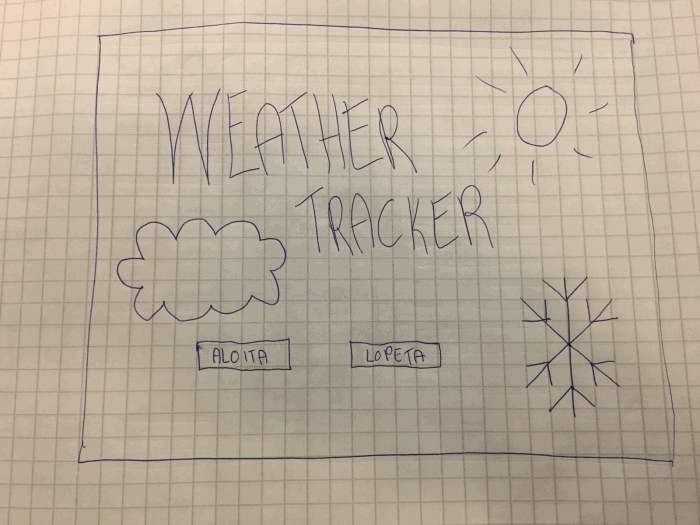 WEATHER
TRACKER
ALOITA
LOPETA